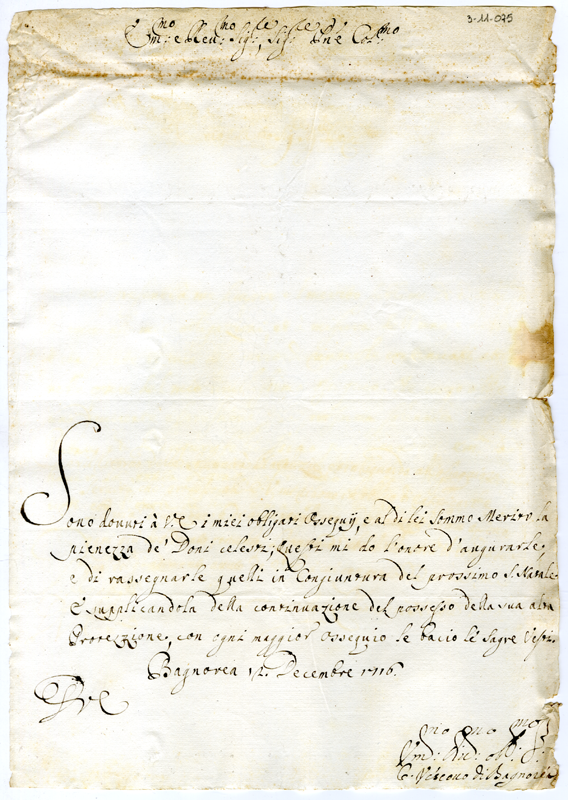 3-11-075
Em:mo e Rev:mo Sig:re, Sig:re Pn'e Col:mo
Sono douuti à V:E i miei obligati Ossequij, e al di lei Sommo Merito la
pienezza de' Doni celesti; Questi mi do l'onore d'augurarle,
e di rassegnarle quelli in Congiuntura del prossimo S. Natale
E supplicandola della continuazione del possesso della sua alta
Protezzione, con ogni maggior Ossequio le bacio le Sagre Vesti.
Bagnorea Decembre 1716.
Um:mo Obl:mo
Vescouo di Bagnorea